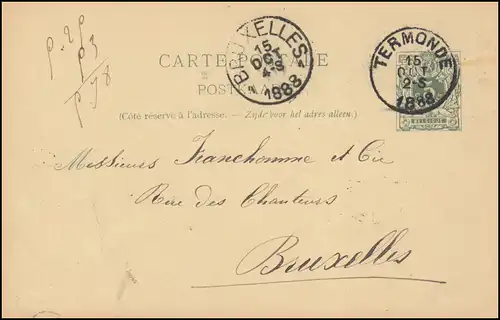 P. 28
P3
P 98
CARTE POSTALE
POSTKAART
(Côté réservé à l'adresse. — Zijde voor het adres alleen.)
BRUXELLES
15
OCT
4-S
1888
TERMONDE
15
OCT
2-S
1888
Messieurs Franchomme et Cie
Rue des Chanteurs
Bruxelles